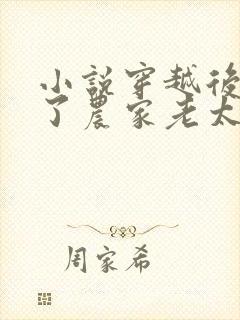 小說穿越後
了農家老太
周家希